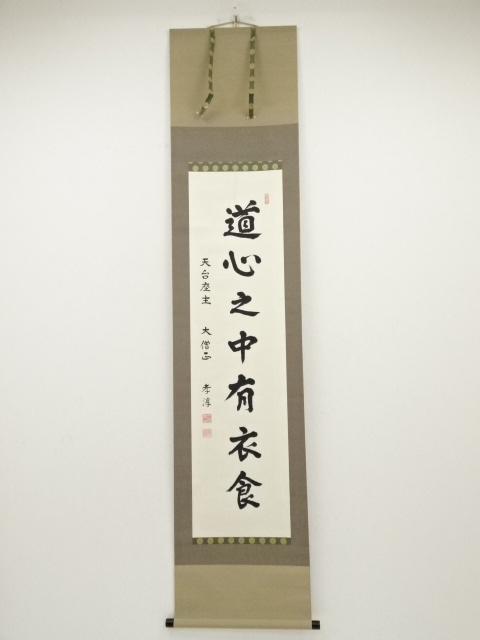 道心之中有衣食
天台座主 大僧正 孝淳